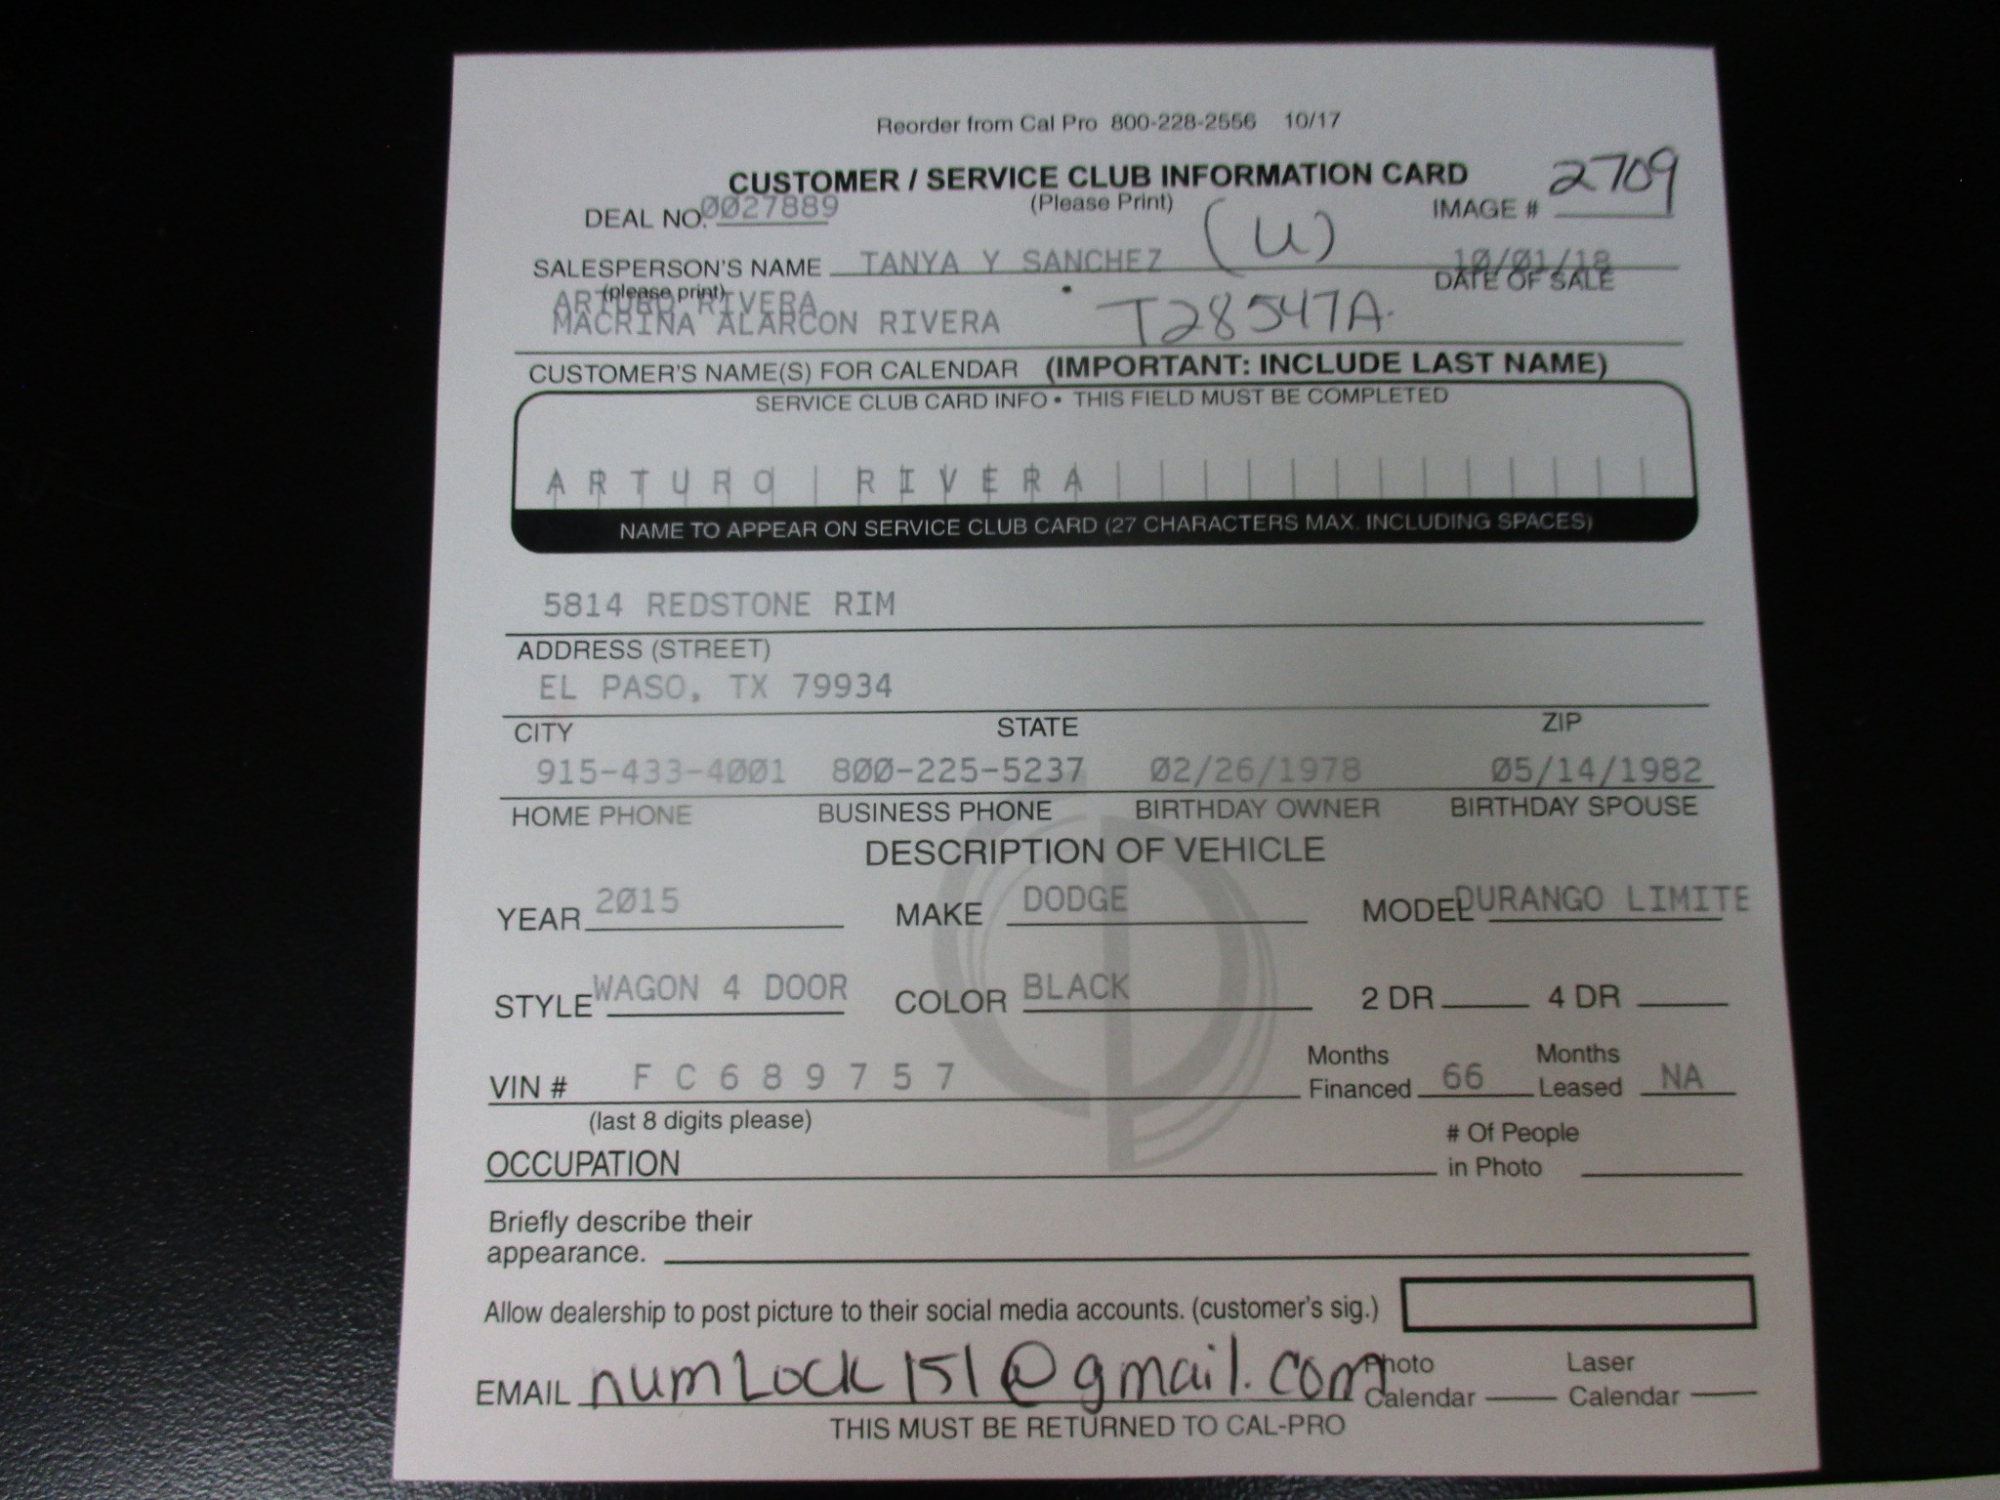 Reorder from Cal Pro 800-228-2556 10/17
CUSTOMER / SERVICE CLUB INFORMATION CARD 2709
DEAL NO. 0027889 (Please Print) IMAGE #
(U)
SALESPERSON'S NAME TANYA Y SANCHEZ 10/01/18
(please print) DATE OF SALE
ARTURO RIVERA
MACRINA ALARCON RIVERA T28547A
CUSTOMER'S NAME(S) FOR CALENDAR (IMPORTANT: INCLUDE LAST NAME)
SERVICE CLUB CARD INFO • THIS FIELD MUST BE COMPLETED
ARTURO RIVERA
NAME TO APPEAR ON SERVICE CLUB CARD (27 CHARACTERS MAX. INCLUDING SPACES)
5814 REDSTONE RIM
ADDRESS (STREET)
EL PASO, TX 79934
CITY STATE ZIP
915-433-4001 800-225-5237 02/26/1978 05/14/1982
HOME PHONE BUSINESS PHONE BIRTHDAY OWNER BIRTHDAY SPOUSE
DESCRIPTION OF VEHICLE
YEAR 2015 MAKE DODGE MODEL DURANGO LIMITE
STYLE WAGON 4 DOOR COLOR BLACK 2 DR 4 DR
VIN # F C 6 8 9 7 5 7 Months Financed 66 Months Leased NA
(last 8 digits please)
OCCUPATION # Of People in Photo
Briefly describe their
appearance.
Allow dealership to post picture to their social media accounts. (customer's sig.)
EMAIL numLock151@gmail.com Photo Calendar Laser Calendar
THIS MUST BE RETURNED TO CAL-PRO